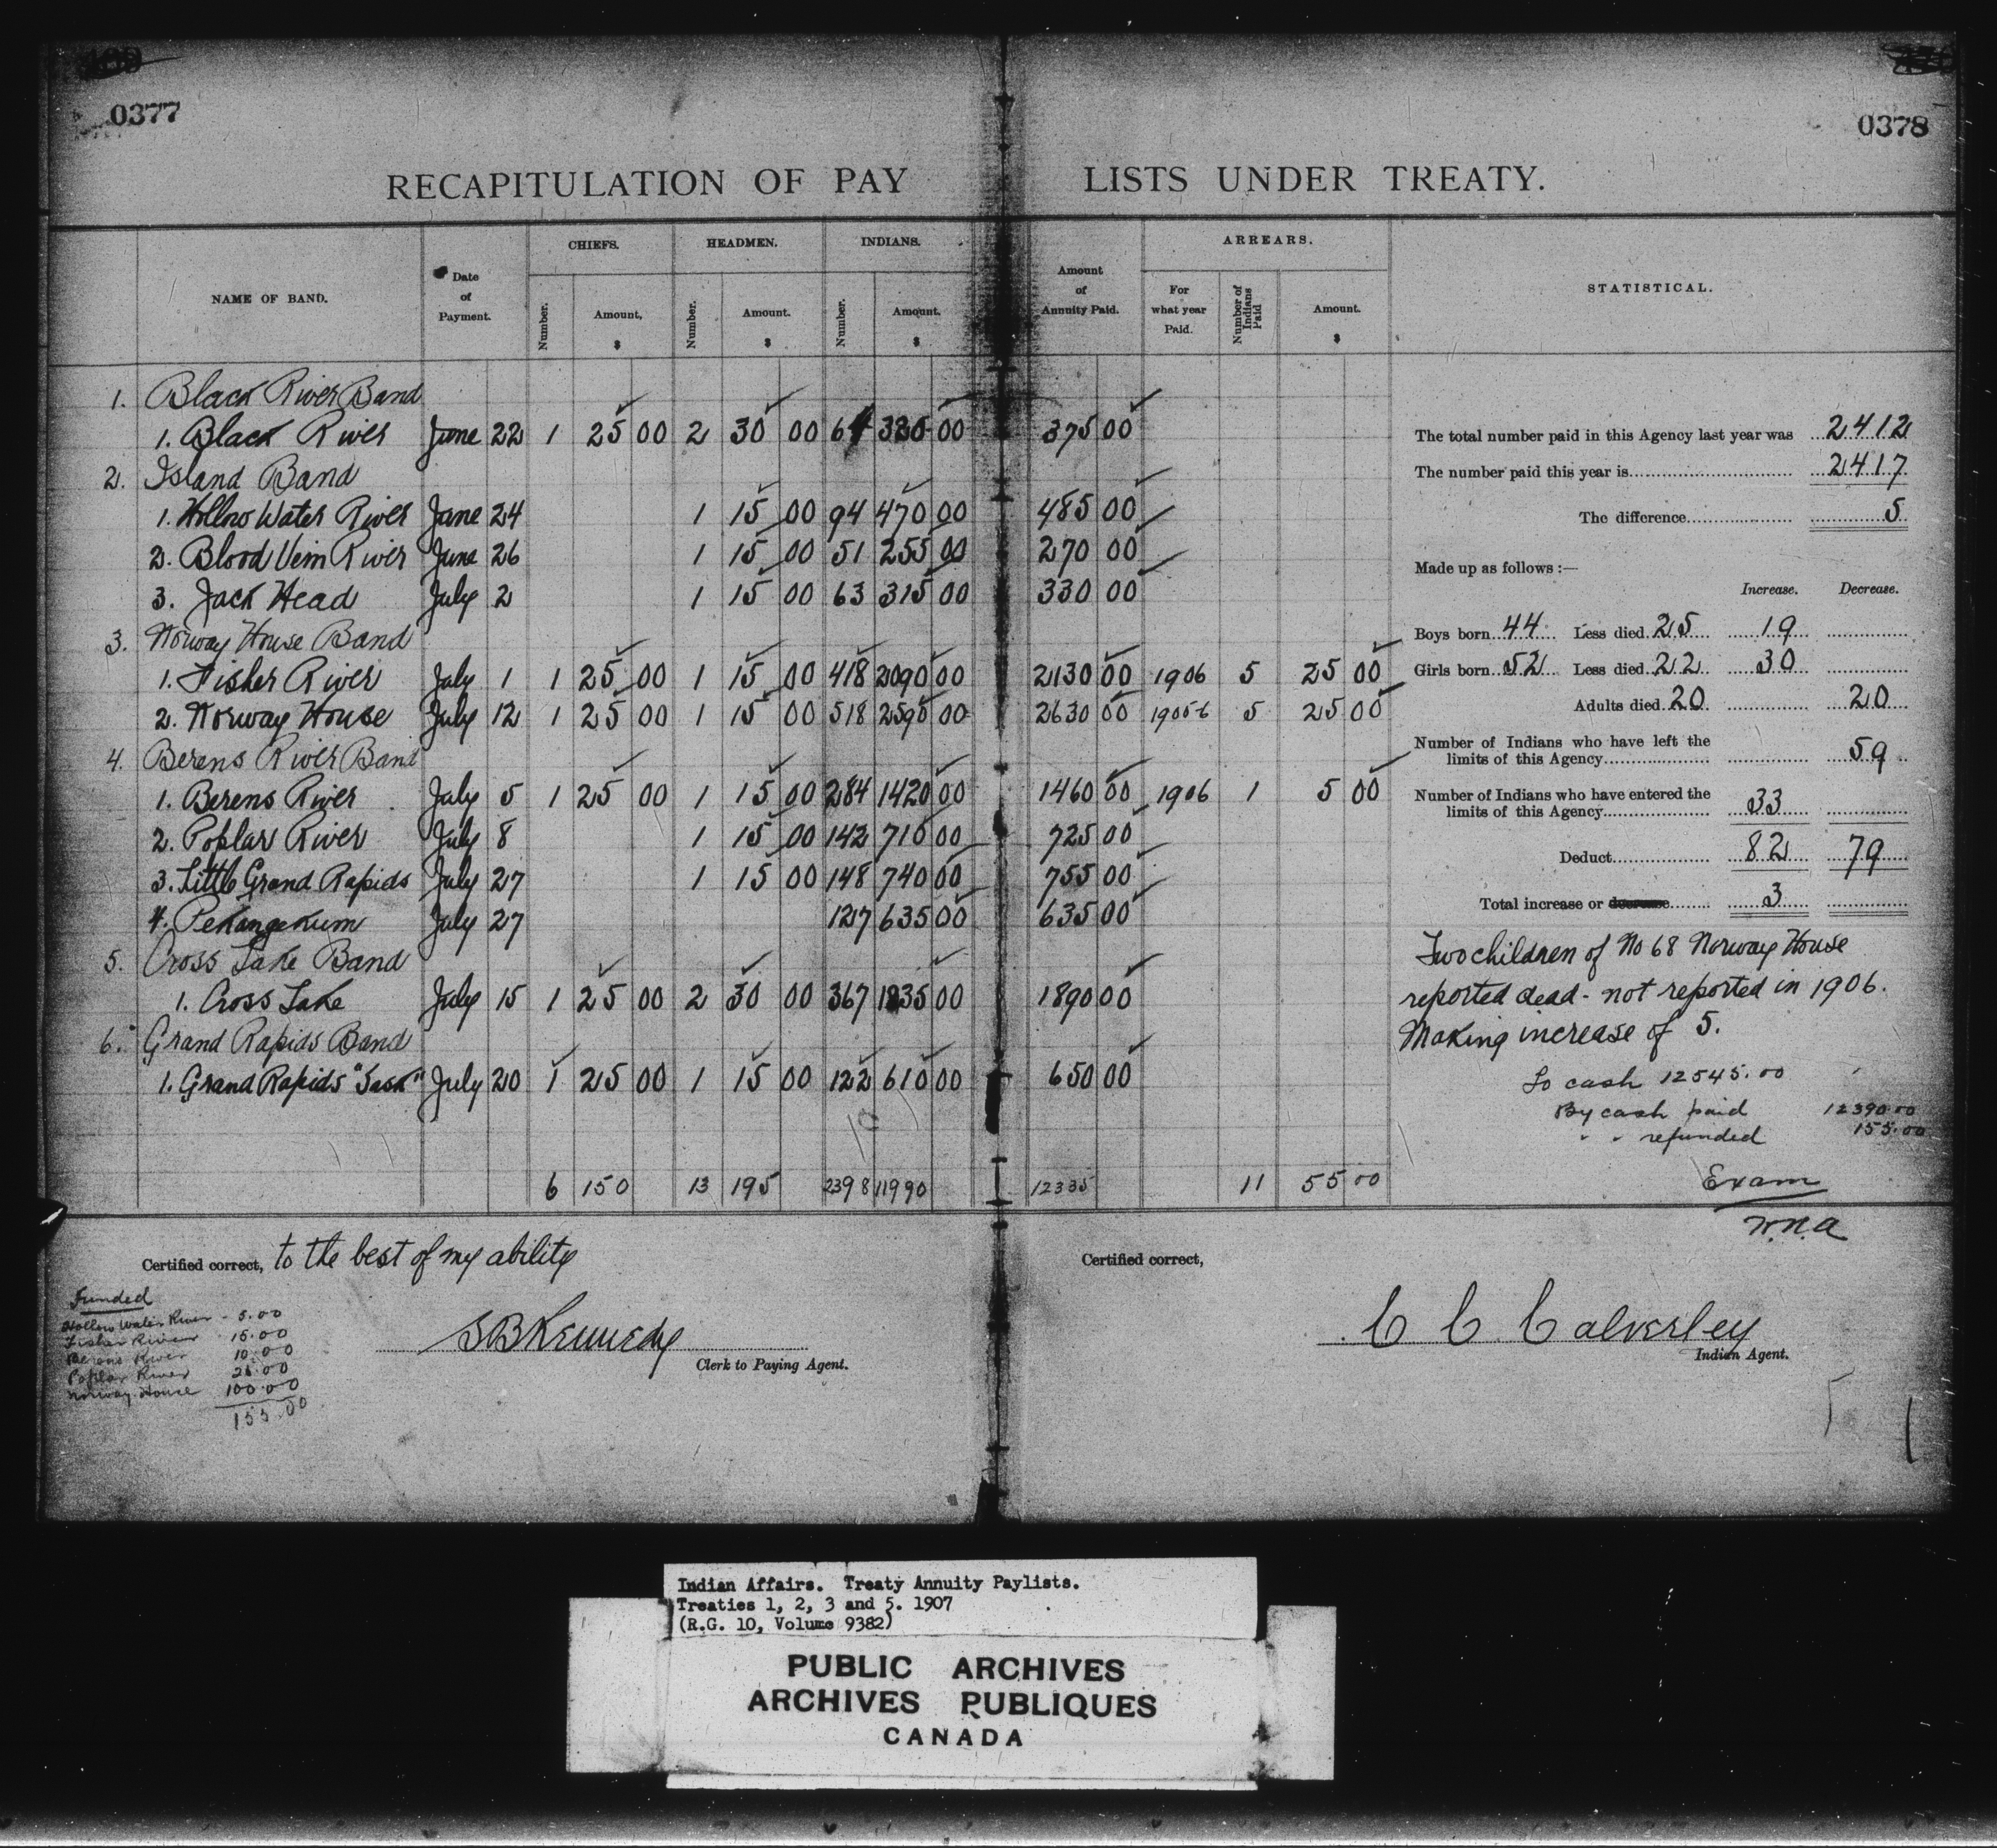 0377
0378
RECAPITULATION OF PAY LISTS UNDER TREATY.
NAME OF BAND.
Date of Payment.
CHIEFS.
Number.
Amount, $
HEADMEN.
Number.
Amount. $
INDIANS.
Number.
Amount. $
Amount of Annuity Paid.
ARREARS.
For what year Paid.
Number of Indians Paid
Amount. $
STATISTICAL.
1. Black River Band
1. Black River June 22 1 25 00 2 30 00 64 320 00 375 00
2. Island Band
1. Hollow Water River June 24 1 15 00 94 470 00 485 00
2. Blood Vein River June 26 1 15 00 51 255 00 270 00
3. Jack Head July 2 1 15 00 63 315 00 330 00
3. Norway House Band
1. Fisher River July 1 1 25 00 1 15 00 418 2090 00 2130 00 1906 5 25 00
2. Norway House July 12 1 25 00 1 15 00 518 2590 00 2630 00 1905-6 5 25 00
4. Berens River Band
1. Berens River July 5 1 25 00 1 15 00 284 1420 00 1460 00 1906 1 5 00
2. Poplar River July 8 1 15 00 142 710 00 725 00
3. Little Grand Rapids July 27 1 15 00 148 740 00 755 00
4. Pekangekum July 27 127 635 00 635 00
5. Cross Lake Band
1. Cross Lake July 15 1 25 00 2 30 00 367 1835 00 1890 00
6. Grand Rapids Band
1. Grand Rapids "Sask" July 20 1 25 00 1 15 00 122 610 00 650 00
6 150 13 195 2398 11990 12335 11 55 00
The total number paid in this Agency last year was 2412
The number paid this year is 2417
The difference 5
Made up as follows:—
Increase. Decrease.
Boys born 44 Less died 25 19
Girls born 52 Less died 22 30
Adults died 20 20
Number of Indians who have left the
limits of this Agency 59
Number of Indians who have entered the
limits of this Agency 33
Deduct 82 79
Total increase or decrease 3
Two children of No 68 Norway House
reported dead - not reported in 1906.
Making increase of 5.
To cash 12545.00
By cash paid 12390.00
" " refunded 155.00
Exam
W.N.A
Certified correct, to the best of my ability
S B Kennedy
Clerk to Paying Agent.
Certified correct,
C C Calverley
Indian Agent.
Funded
Hollow Water River - 5.00
Fisher River 15.00
Berens River 10.00
Poplar River 25.00
Norway House 100.00
155.00
Indian Affairs. Treaty Annuity Paylists.
Treaties 1, 2, 3 and 5. 1907
(R.G. 10, Volume 9382)
PUBLIC ARCHIVES
ARCHIVES PUBLIQUES
CANADA